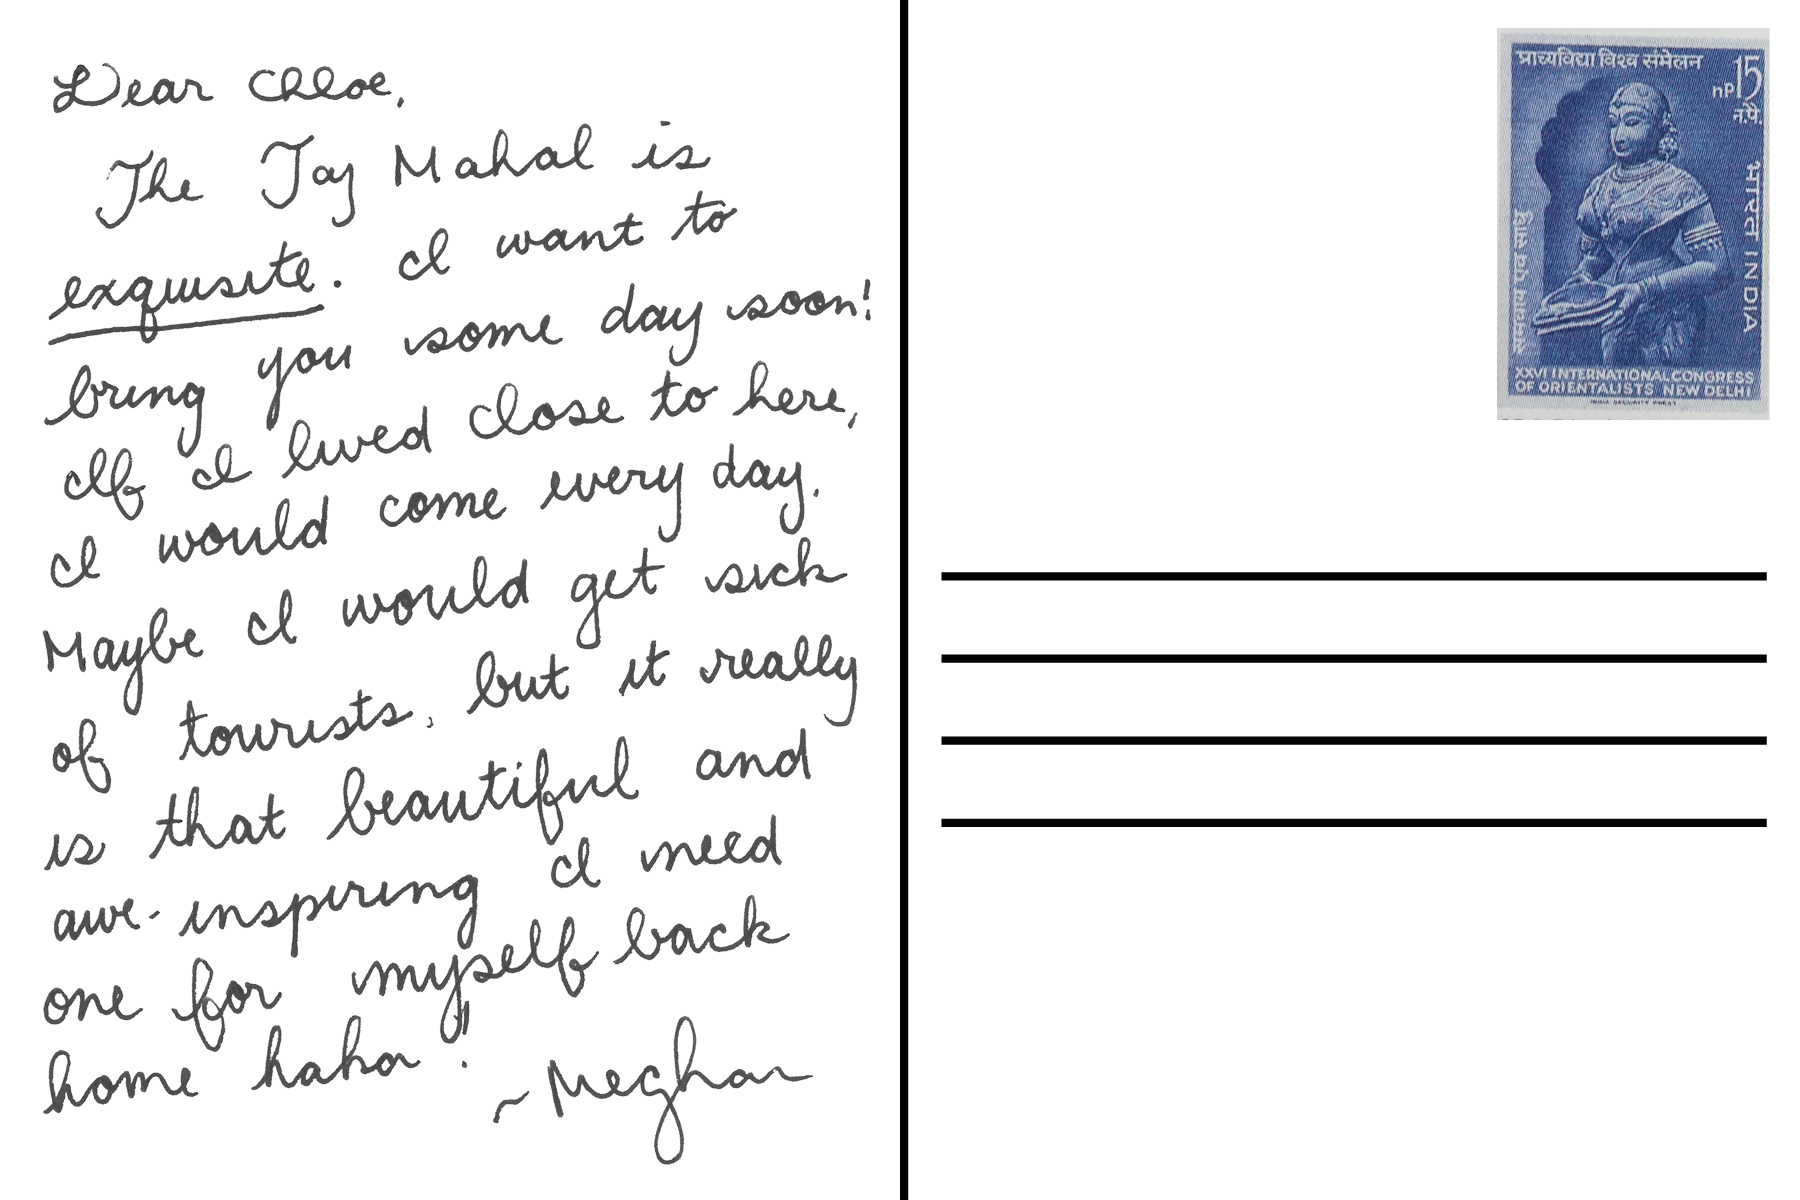 Dear Chloe,
The Taj Mahal is
exquisite. I want to
bring you some day soon!
If I lived close to here,
I would come every day.
Maybe I would get sick
of tourists, but it really
is that beautiful and
awe-inspiring I need
one for myself back
home haha!
~Meghan
प्राच्यविद्या विश्व संमेलन
nP15
न.पै.
भारत INDIA
XXVI INTERNATIONAL CONGRESS
OF ORIENTALISTS NEW DELHI
INDIA SECURITY PRESS